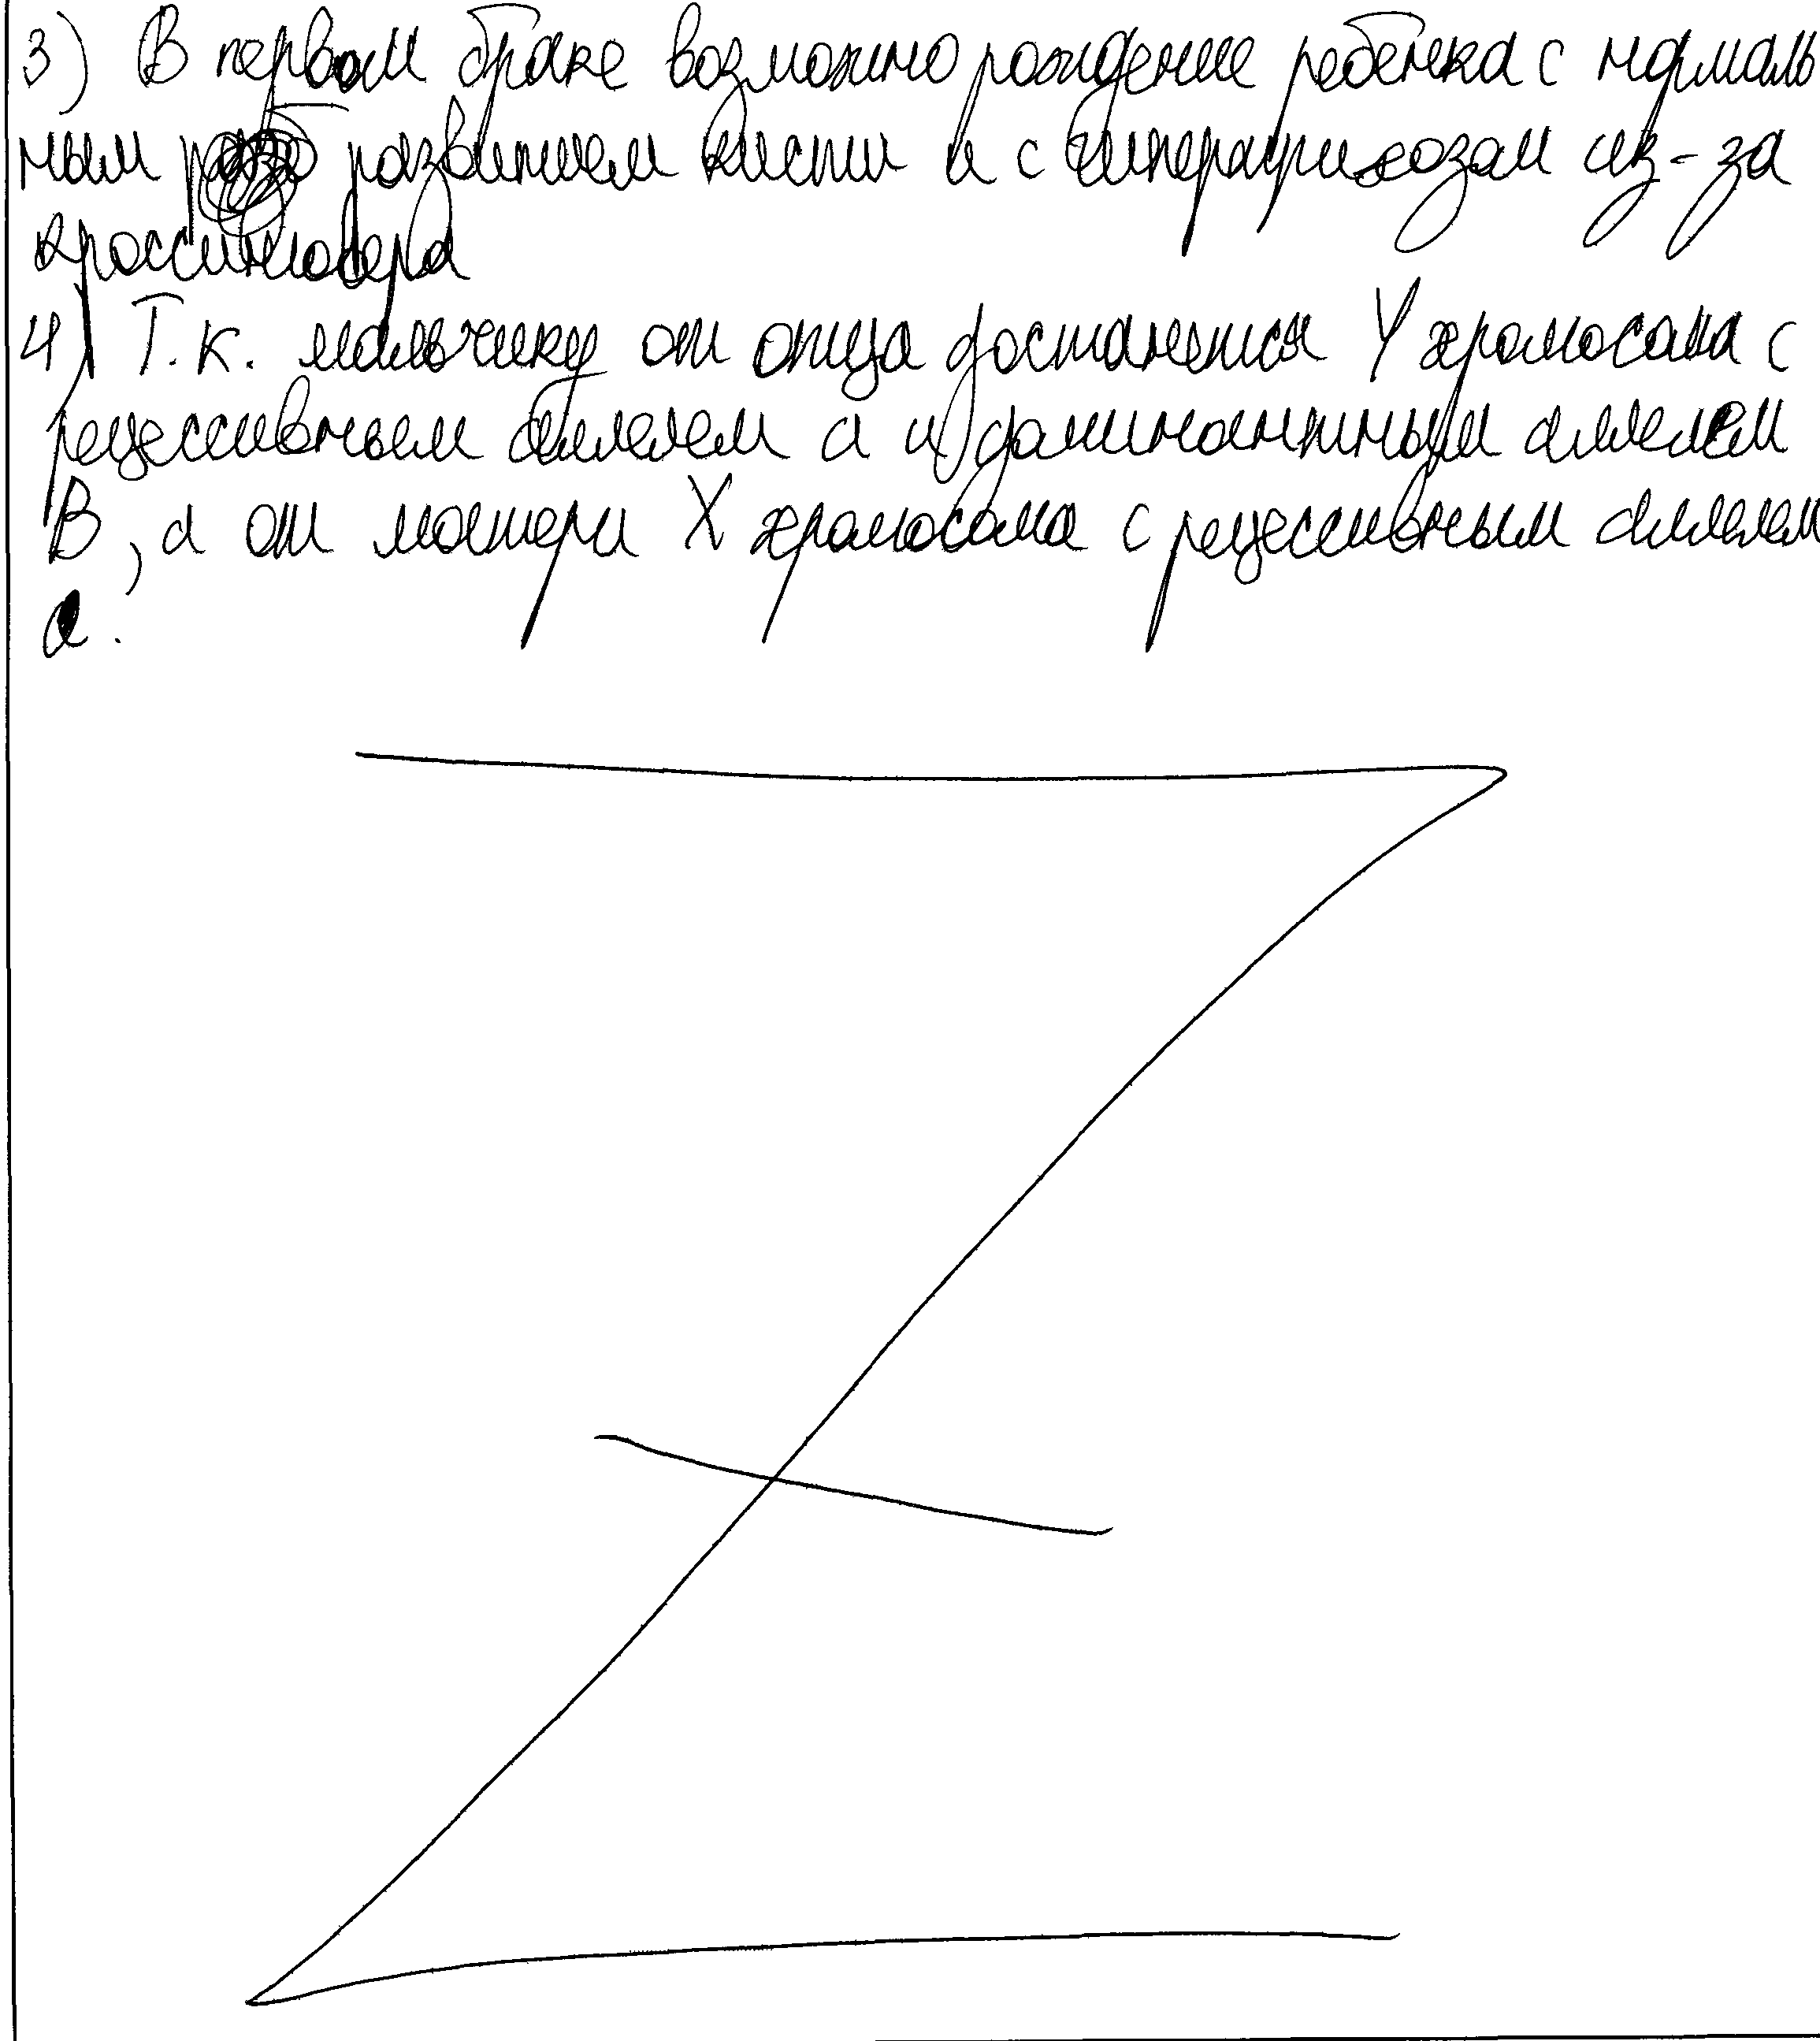 3) В первом браке возможно рождение ребёнка с нормаль
ным развитием кисти и с гипертрихозом из-за
кроссинговера
4) Т.к. мальчику от отца достанется Y хромосома с
рецессивным аллелем a и доминантным аллелем
B, а от матери X хромосома с рецессивным аллелем
a.